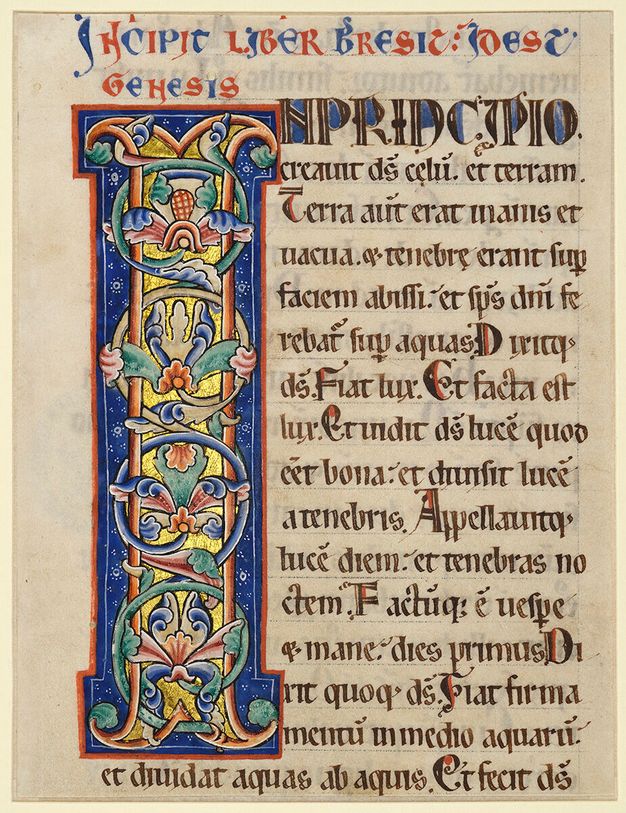 INCIPIT LIBER BRESIT: IDEST
GENESIS
IN PRINCIPIO.
creauit ds̄ cęlū. et terram.
Terra aūt erat inanis et
uacua. & tenebrę erant sup
faciem abissi: et sp̄s dn̄i fe
rebat᷑ sup aquas. Dixitq;
ds̄. Fiat lux. Et facta est
lux. Et uidit ds̄ lucē quod
eēt bona: et diuisit lucē
a tenebris. Appellauitq;
lucē diem: et tenebras no
ctem. Factūq; ē uespe
& mane: dies primus. Di
xit quoq; ds̄. Fiat firma
mentū in medio aquarū:
et diuidat aquas ab aquis. Et fecit ds̄